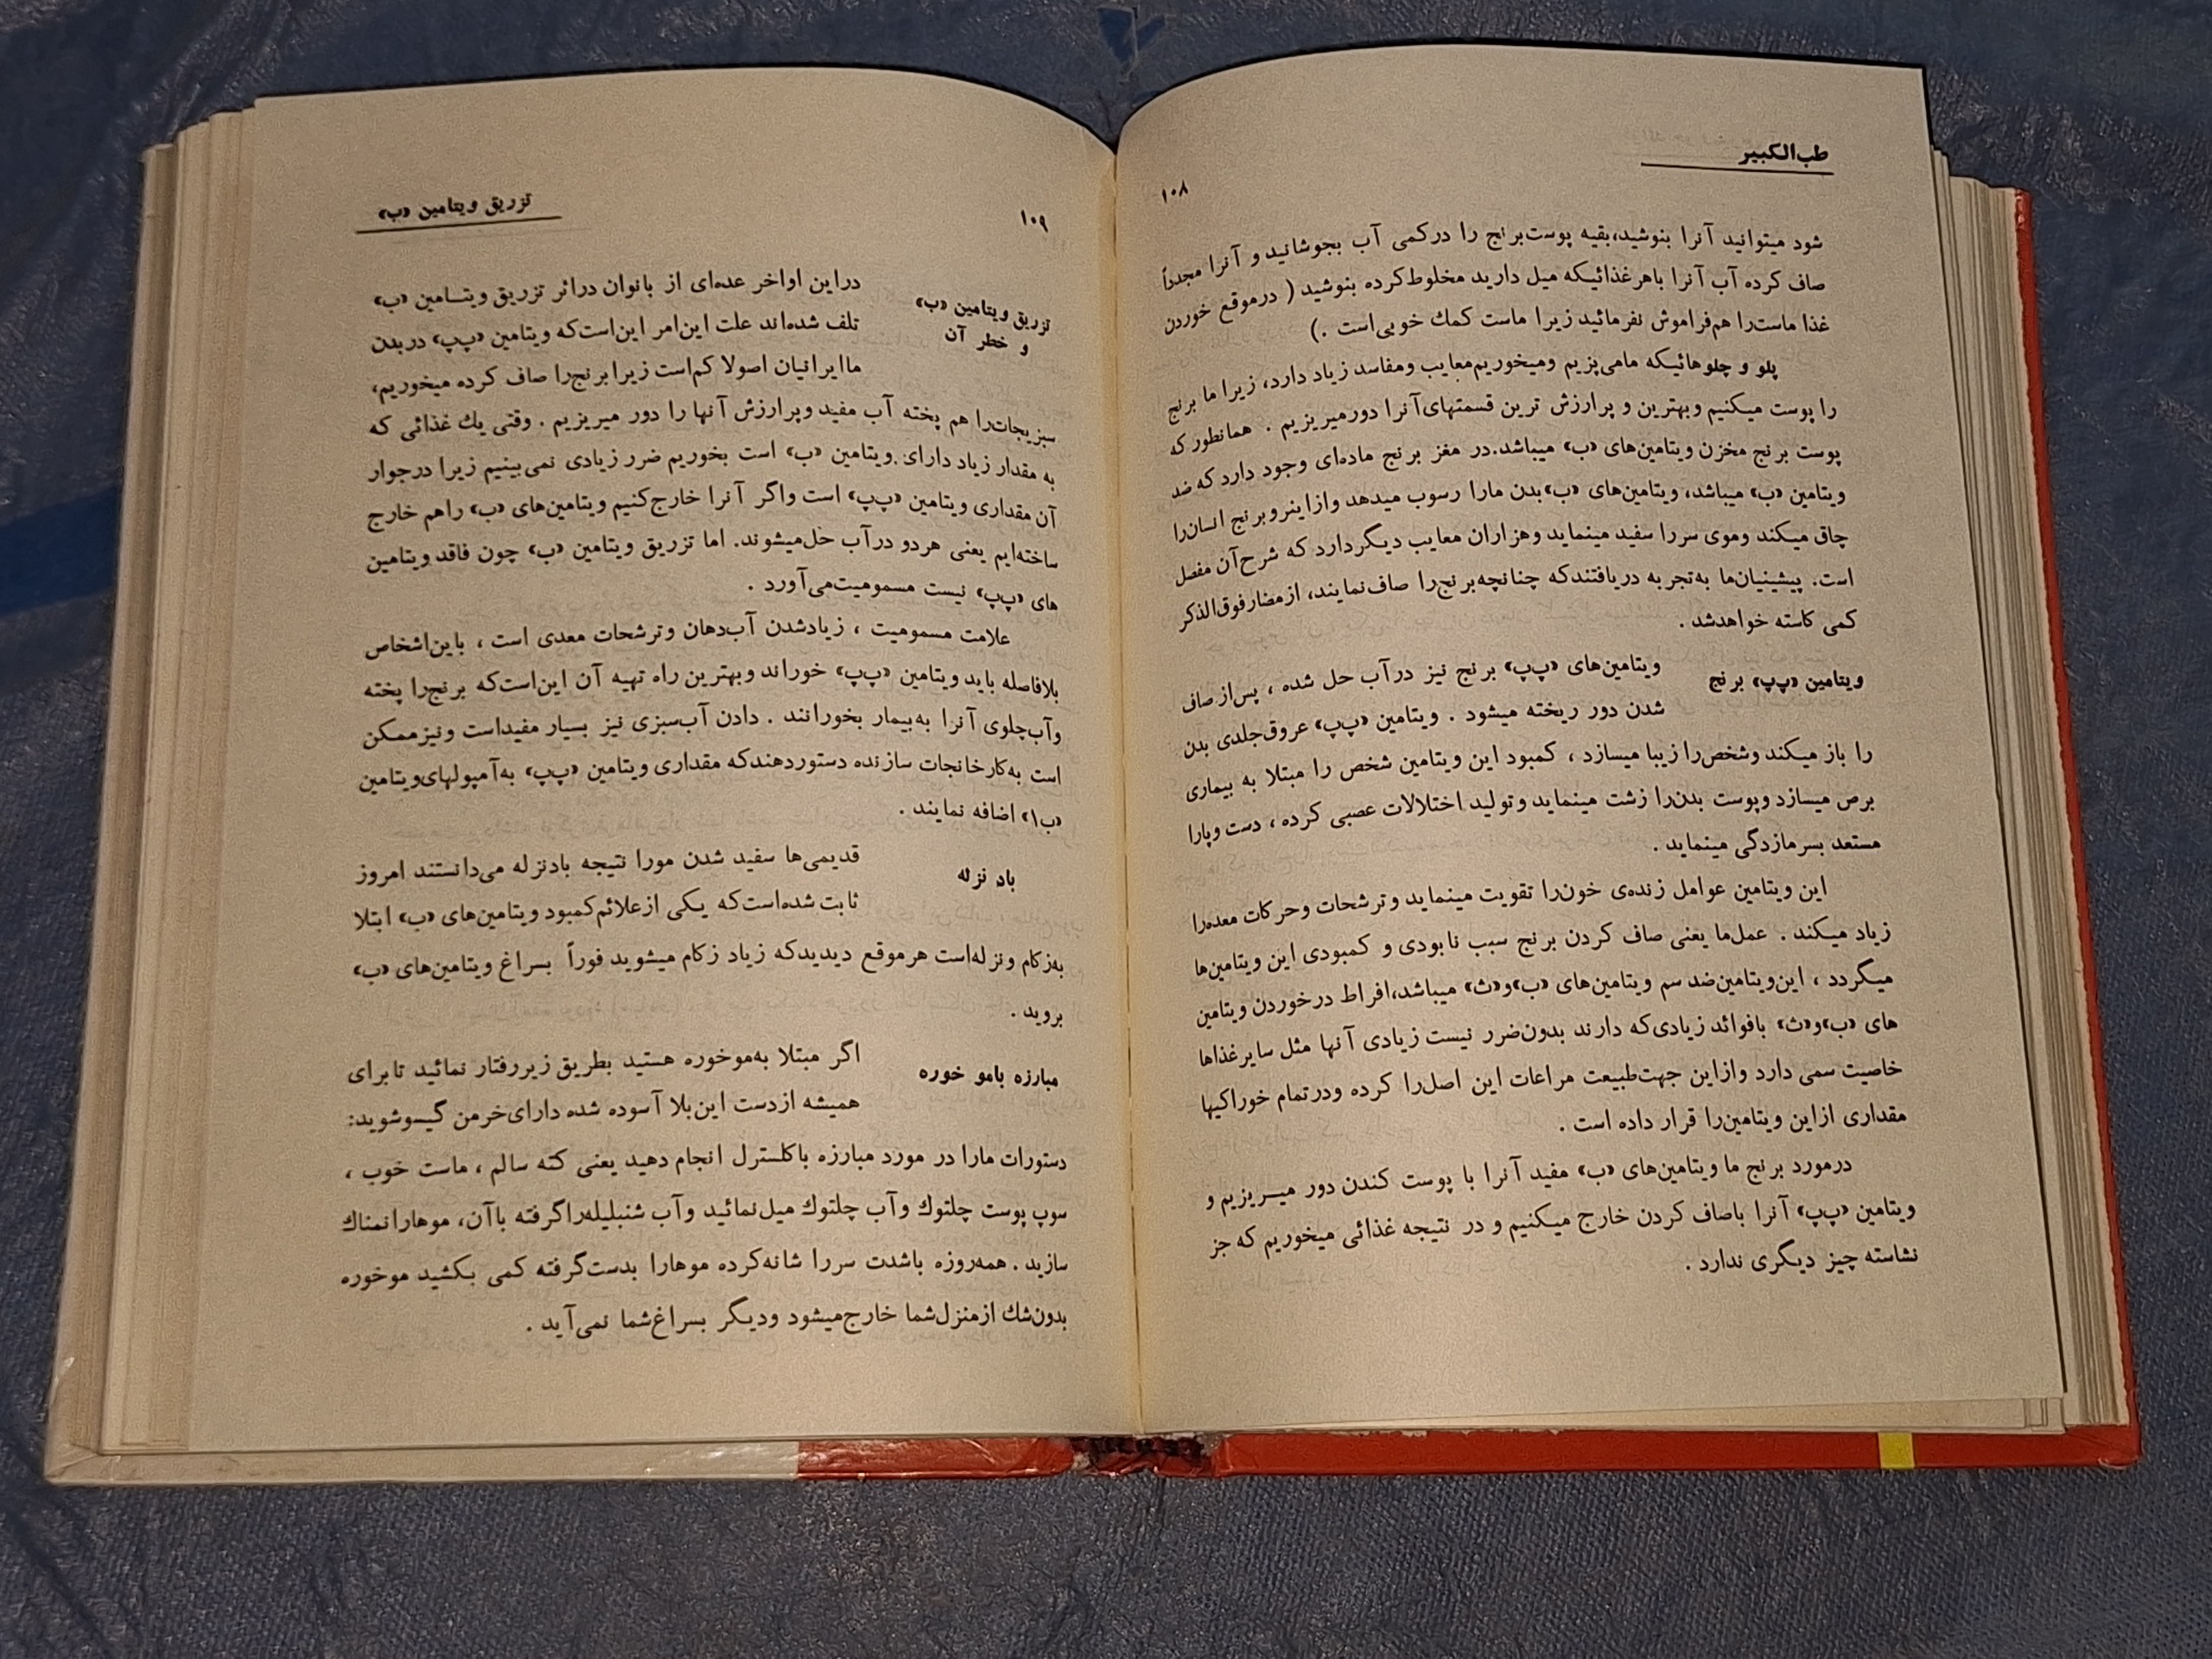 طب‌الکبیر
۱۰۸
شود میتوانید آنرا بنوشید،بقیه پوست‌برنج را درکمی آب بجوشانید و آنرا مجدداً
صاف کرده آب آنرا باهرغذائیکه میل دارید مخلوط‌کرده بنوشید ( درموقع خوردن
غذا ماست‌را هم‌فراموش نفرمائید زیرا ماست کمك خوبی‌است .)
پلو و چلوهائیکه مامی‌پزیم ومیخوریم‌معایب ومفاسد زیاد دارد، زیرا ما برنج
را پوست میکنیم وبهترین و پرارزش ترین قسمتهای‌آنرا دورمیریزیم . همانطورکه
پوست برنج مخزن ویتامین‌های «ب» میباشد.در مغز برنج ماده‌ای وجود داردکه ضد
ویتامین «ب» میباشد، ویتامین‌های «ب»بدن مارا رسوب میدهد وازاینروبرنج انسان‌را
چاق میکند وموی سررا سفید مینماید وهزاران معایب دیگردارد که شرح‌آن مفصل
است. پیشینیان‌ما به‌تجربه دریافتندکه چنانچه‌برنج‌را صاف‌نمایند، ازمضارفوق‌الذکر
کمی کاسته خواهدشد .
ویتامین «پ‌پ» برنج
ویتامین‌های «پ‌پ» برنج نیز درآب حل شده ، پس‌ازصاف
شدن دور ریخته میشود . ویتامین «پ‌پ» عروق‌جلدی بدن
را باز میکند وشخص‌را زیبا میسازد ، کمبود این ویتامین شخص را مبتلا به بیماری
برص میسازد وپوست بدن‌را زشت مینماید وتولید اختلالات عصبی کرده ، دست وپارا
مستعد بسرمازدگی مینماید .
این ویتامین عوامل زنده‌ی خون‌را تقویت مینماید وترشحات وحرکات معده‌را
زیاد میکند . عمل‌ما یعنی صاف کردن برنج سبب نابودی و کمبودی این ویتامین‌ها
میگردد ، این‌ویتامین‌ضد سم ویتامین‌های «ب»و«ث» میباشد،افراط درخوردن ویتامین
های «ب»و«ث» بافوائد زیادی‌که دارند بدون‌ضرر نیست زیادی آنها مثل سایرغذاها
خاصیت سمی دارد وازاین جهت‌طبیعت مراعات این اصل‌را کرده ودرتمام خوراکیها
مقداری ازاین ویتامین‌را قرار داده است .
درمورد برنج ما ویتامین‌های «ب» مفید آنرا با پوست کندن دور میریزیم و
ویتامین «پ‌پ» آنرا باصاف کردن خارج میکنیم و در نتیجه غذائی میخوریم که جز
نشاسته چیز دیگری ندارد .
۱۰۹
تزریق ویتامین «ب»
تزریق ویتامین «ب»
و خطر آن
دراین اواخر عده‌ای از بانوان دراثر تزریق ویتـامین «ب»
تلف شده‌اند علت این‌امر این‌است‌که ویتامین «پ‌پ» دربدن
ماایرانیان اصولا کم‌است زیرابرنج‌را صاف کرده میخوریم،
سبزیجات‌را هم پخته آب مفید وپرارزش آنها را دور میریزیم . وقتی یك غذائی که
به مقدار زیاد دارای ویتامین «ب» است بخوریم ضرر زیادی نمی‌بینیم زیرا درجوار
آن مقداری ویتامین «پ‌پ» است واگر آنرا خارج‌کنیم ویتامین‌های «ب» راهم خارج
ساخته‌ایم یعنی هردو درآب حل‌میشوند. اما تزریق ویتامین «ب» چون فاقد ویتامین
های «پ‌پ» نیست مسمومیت‌می‌آورد .
علامت مسمومیت ، زیادشدن آب‌دهان وترشحات معدی است ، باین‌اشخاص
بلافاصله باید ویتامین «پ‌پ» خوراند وبهترین راه تهیه آن این‌است‌که برنج‌را پخته
وآب‌چلوی آنرا به‌بیمار بخورانند . دادن آب‌سبزی نیز بسیار مفیداست ونیزممکن
است به‌کارخانجات سازنده دستوردهندکه مقداری ویتامین «پ‌پ» به‌آمپولهای‌ویتامین
«ب۱» اضافه نمایند .
باد نزله
قدیمی‌ها سفید شدن مورا نتیجه بادنزله می‌دانستند امروز
ثابت شده‌است‌که یکی ازعلائم‌کمبود ویتامین‌های «ب» ابتلا
به‌زکام ونزله‌است هرموقع دیدیدکه زیاد زکام میشوید فوراً بسراغ ویتامین‌های «ب»
بروید .
مبارزه بامو خوره
اگر مبتلا به‌موخوره هستید بطریق زیررفتار نمائید تابرای
همیشه ازدست این‌بلا آسوده شده دارای‌خرمن گیسوشوید:
دستورات مارا در مورد مبارزه باکلسترل انجام دهید یعنی کته سالم ، ماست خوب ،
سوپ پوست چلتوك وآب چلتوك میل‌نمائید وآب شنبلیله‌راگرفته باآن، موهارانمناك
سازید . همه‌روزه باشدت سررا شانه‌کرده موهارا بدست‌گرفته کمی بکشید موخوره
بدون‌شك ازمنزل‌شما خارج‌میشود ودیگر بسراغ‌شما نمی‌آید .